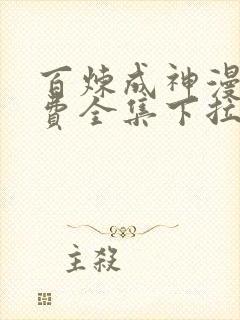 百炼成神漫
费全集下拉
主殺